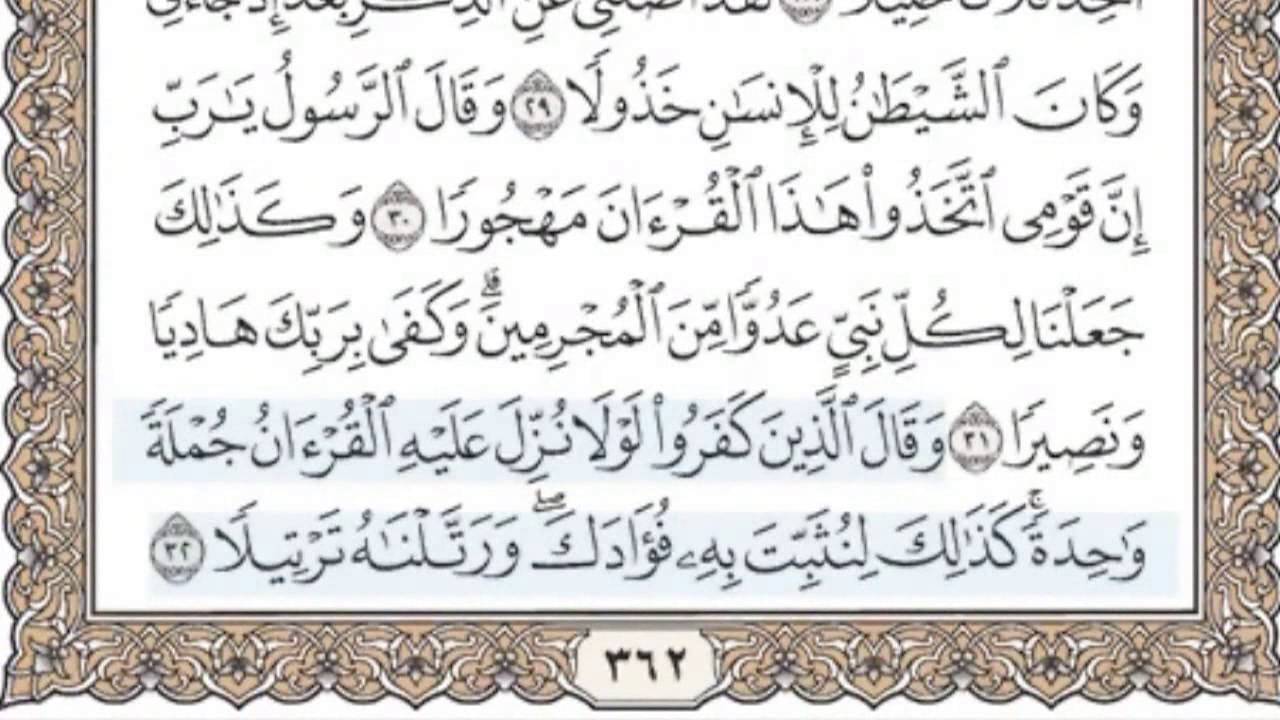 لَقَدْ أَضَلَّنِى عَنِ ٱلذِّكْرِ بَعْدَ إِذْ جَآءَنِى
وَكَانَ ٱلشَّيْطَٰنُ لِلْإِنسَٰنِ خَذُولًا ٢٩ وَقَالَ ٱلرَّسُولُ يَٰرَبِّ
إِنَّ قَوْمِى ٱتَّخَذُوا۟ هَٰذَا ٱلْقُرْءَانَ مَهْجُورًا ٣٠ وَكَذَٰلِكَ
جَعَلْنَا لِكُلِّ نَبِىٍّ عَدُوًّا مِّنَ ٱلْمُجْرِمِينَ ۗ وَكَفَىٰ بِرَبِّكَ هَادِيًا
وَنَصِيرًا ٣١ وَقَالَ ٱلَّذِينَ كَفَرُوا۟ لَوْلَا نُزِّلَ عَلَيْهِ ٱلْقُرْءَانُ جُمْلَةً
وَٰحِدَةً ۚ كَذَٰلِكَ لِنُثَبِّتَ بِهِۦ فُؤَادَكَ ۖ وَرَتَّلْنَٰهُ تَرْتِيلًا ٣٢
٣٦٢